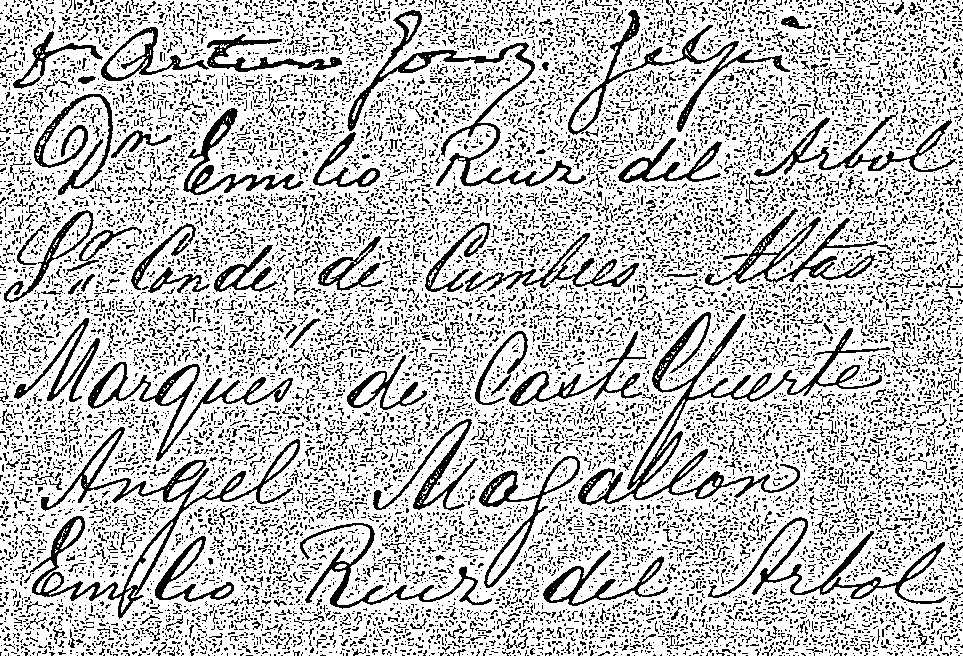 Dn. Arturo Gonz. Gelpi
Dn Emilio Ruiz del Arbol
Sr. Conde de Cumbres-Altas
Marqués de Castelfuerte
Angel Magallon
Emilio Ruiz del Arbol